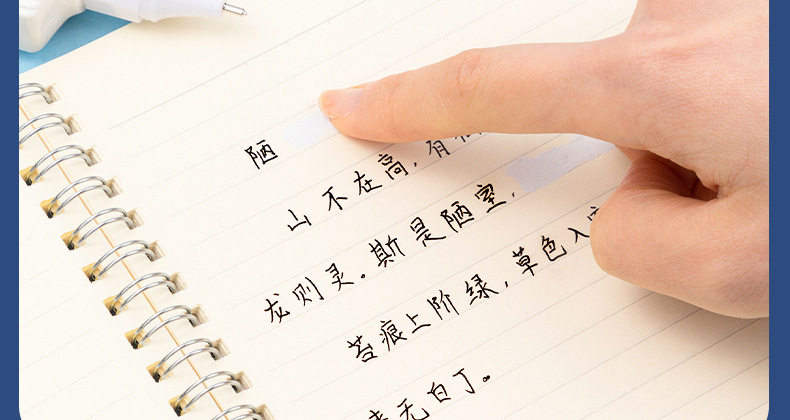 陋
山不在高，有
龙则灵。斯是陋室，
苔痕上阶绿，草色入
无白丁。